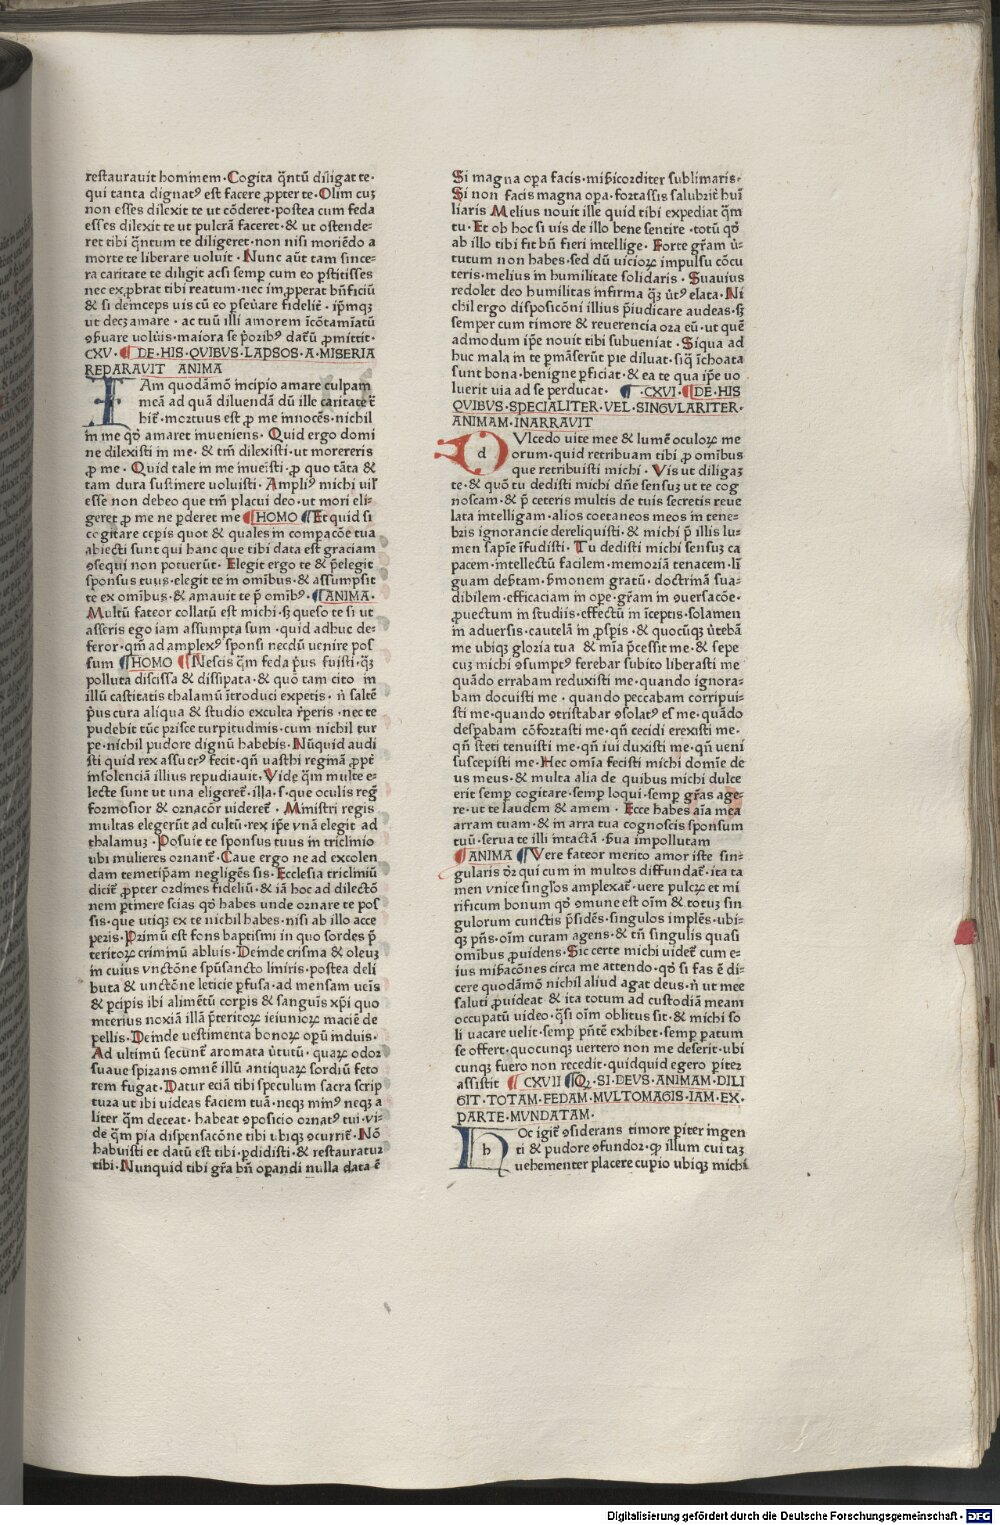 restauravit hominem·Cogita q̄ntū diligat te·
qui tanta dignatꝰ est facere ꝓpter te·Olim cuꝫ
non esses dilexit te ut cōderet·postea cum feda
esses dilexit te ut pulcrā faceret·& ut ostende-
ret tibi q̄ntum te diligeret·non nisi moriēdo a
morte te liberare uoluit·Nunc aūt tam since-
ra caritate te diligit acsi semꝑ cum eo ꝑstitisses
nec exꝓbrat tibi reatum·nec imꝓperat bn̄ficiū
& si deinceps uis cū eo ꝑseuare fidelit̄·ip̄mqꝫ
ut decꝫ amare·ac tuū illi amorem īcōtamīatū
ꝯseruare
CXV·¶ DE·HIS·QVIBVS·LAPSOS·A·MISERIA
REPARAVIT ANIMA
IAm quodāmō incipio amare culpam
meā ad quā diluendā dū ille caritate t̄
hit̄·mortuus est ꝓ me innocēs·nichil
in me qd̄ amaret inueniens·Quid ergo domi
ne dilexisti in me·& tm̄ dilexisti·ut morereris
ꝓ me·Quid tale in me inueīsti·ꝓ quo tāta &
tam dura sustinere uoluisti·Ampliꝰ michi uil̄
esse non debeo que tm̄ placui deo·ut mori eli-
geret ꝓ me ne ꝑderet me ¶HOMO ¶Et quid si
cogitare cepis quot & quales in compacōe tua
abiecti sunt qui hanc que tibi data est graciam
ꝯsequi non potuerūt·Elegit ergo te & p̄elegit
sponsus tuus·elegit te in omībus·& assumpsit
te ex omībus·& amauit te p̄ omībꝰ·¶ANIMA·
Multū fateor collatū est michi·sꝫ queso te si ut
asseris ego iam assumpta sum·quid adhuc de-
feror·qm̄ ad amplexꝰ sponsi necdū uenire pos
sum ¶HOMO ¶Nescis q̄m feda p̄us fuisti·q̄ꝫ
polluta discissa & dissipata·& quō tam cito in
illū castitatis thalamū ītroduci expetis·n̄ saltē
p̄us cura aliqua & studio exculta r̄peris·nec te
pudebit tūc prisce turpitudinis·cum nichil tur
pe·nichil pudore dignū habebis·Nūquid audi
sti quid rex assuerꝰ fecit·qn̄ uasthi reginā ꝓpt̄
insolenciā illius repudiauit·Vide q̄m multe e-
lecte sunt ut una eligeret̄·illa·s·que oculis reḡ
formosior & ornacōr uideret̄·Ministri regis
multas elegerūt ad cultū·rex ip̄e vnā elegit ad
thalamuꝫ·Posuit te sponsus tuus in triclinio
ubi mulieres ornant̄·Caue ergo ne ad excolen
dam temetip̄am negligēs sis·Ecclesia tricliniū
dicit̄ ꝓpter ordines fideliū·& iā hoc ad dilectō
nem ꝑtinere scias qd̄ habes unde ornare te pos
sis·que utiqꝫ ex te nichil habes·nisi ab illo acce
peris·Primū est fons baptismi in quo sordes p̄
teritoꝝ criminū abluis·Deinde crisma & oleuꝫ
in cuius vnctōne spūsancto liniris·postea deli
buta & unctōne leticie ꝑfusa·ad mensam ueīs
& ꝑcipis ibi alimētū corpis & sanguīs xp̄i quo
interius noxiā illā p̄teritoꝝ ieiunioꝝ maciē de
pellis·Deinde uestimenta bonoꝝ operū induis·
Ad ultimū secunt̄ aromata v̄tutū·quaꝝ odor
suaue spirans omnē illū antiquaꝝ sordiū feto
rem fugat·Datur eciā tibi speculum sacra scrip
tura ut ibi uideas faciem tuā·neqꝫ minꝰ neqꝫ a
liter q̄m deceat·habeat ꝯposicio ornatꝰ tui·vi-
de q̄m pia dispensacōne tibi ubiqꝫ ꝯcurrit̄·Nō
habuisti et datū est tibi·ꝑdidisti·& restauratur
tibi·Nunquid tibi gr̄a bn̄ oꝑandi nulla data ē
Si magna oꝑa facis·mīsericorditer sublimaris·
Si non facis magna opa·fortassis salubrit̄ huī
liaris Melius nouit ille quid tibi expediat q̄m
tu·Et ob hoc si uis de illo bene sentire·totū qd̄
ab illo tibi fit bn̄ fieri intellige·Forte gr̄am v̄-
tutum non habes·sed dū vicioꝝ impulsu cōcu
teris·melius in humilitate solidaris·Suauius
redolet deo humilitas infirma q̄ꝫ v̄tꝰ elata·Ni
chil ergo disposicōni illius p̄iudicare audeas·sꝫ
semper cum timore & reuerencia ora eū·ut quē
admodum ip̄e nouit tibi subueniat·Siqua ad
huc mala in te ꝑmāserūt pie diluat·siq̄ īchoata
sunt bona·benigne ꝑficiat·& ea te qua ip̄e uo
luerit via ad se perducat· ¶·CXVI·¶DE·HIS
QVIBVS·SPECIALITER·VEL·SINGVLARITER·
ANIMAM·INARRAVIT
d Vlcedo uite mee & lumē oculoꝝ me
orum·quid retribuam tibi ꝓ omībus
que retribuisti michi·Vis ut diligaꝫ
te·& quō tu dedisti michi dn̄e sensuꝫ ut te cog
noscam·& p̄ ceteris multis de tuis secretis reue
lata intelligam·alios coetaneos meos in tene-
bris ignorancie dereliquisti·& michi p̄ illis lu-
men sapīe īfudisti·Tu dedisti michi sensuꝫ ca
pacem·intellectū facilem·memoriā tenacem·lī
guam
dibilem·efficaciam in oꝑe·gr̄am in ꝯuersacōe·
ꝓuectum in studiis·effectū in īceptis·solamen
in aduersis·cautelā in ꝓspis·& quocūqꝫ v̄tebā
me ubiqꝫ gloria tua & mīa p̄cessit me·& sepe
cuꝫ michi ꝯsumptꝰ ferebar subito liberasti me
quādo errabam reduxisti me·quando ignora-
bam docuisti me·quando peccabam corripui-
sti me·quando ꝯtristabar ꝯsolatꝰ es me·quādo
desꝑabam cōfortasti me·qn̄ cecidi erexisti me·
qn̄ steti tenuisti me·qn̄ iui duxisti me·qn̄ veni
suscepisti me·Hec omīa fecisti michi domīe de
us meus·& multa alia de quibus michi dulce
erit semꝑ cogitare·semꝑ loqui·semꝑ gr̄as age-
re·ut te laudem & amem·Ecce habes aīa mea
arram tuam·& in arra tua cognoscis sponsum
tuū·serua te illi intactā·ẜua impollutam
¶ANIMA ¶Vere fateor merito amor iste sin-
gularis dr̄ qui cum in multos diffundat̄·ita ta
men vnice singl̄os amplexat̄·uere pulcꝝ et mi
rificum bonum qd̄ ꝯmune est oīm & totuꝫ sin
gulorum cunctis p̄sidēs·singulos implēs·ubi-
qꝫ pn̄s·oīm curam agens·& tn̄ singulis quasi
omibus ꝓuidens·Sic certe michi uidet̄ cum e-
ius miẜacōnes circa me attendo·qd̄ si fas ē di-
cere quodāmō nichil aliud agat deus·n̄ ut mee
saluti ꝓuideat & ita totum ad custodiā meam
occupatū uideo·q̄si oīm oblitus sit·& michi so
li uacare uelit·semꝑ pn̄tē exhibet·semꝑ paratum
se offert·quocunqꝫ uertero non me deserit·ubi
cunqꝫ fuero non recedit·quidquid egero ꝑiter
assistit ¶ CXVII ¶Qꝫ·SI·DEVS·ANIMAM·DILI
GIT·TOTAM·FEDAM·MVLTOMAGIS·IAM·EX·
PARTE·MVNDATAM·
h Oc igit̄ ꝯsiderans timore ꝑiter ingen
ti & pudore ꝯfundor·qꝫ illum cui taꝫ
uehementer placere cupio ubiqꝫ michi
Digitalisierung gefördert durch die Deutsche Forschungsgemeinschaft - DFG